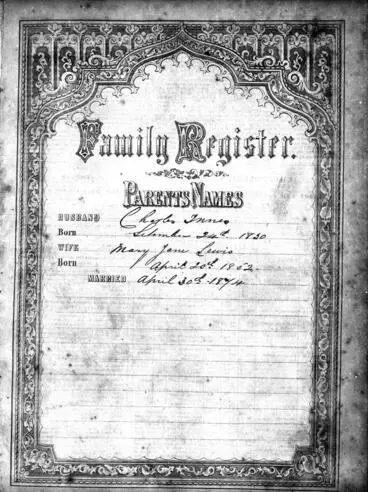 Family Register.
PARENTS NAMES
HUSBAND Charles Innes
Born September 24th 1830
WIFE Mary Jane Lewis
Born April 20th 1852
MARRIED April 30th 1874